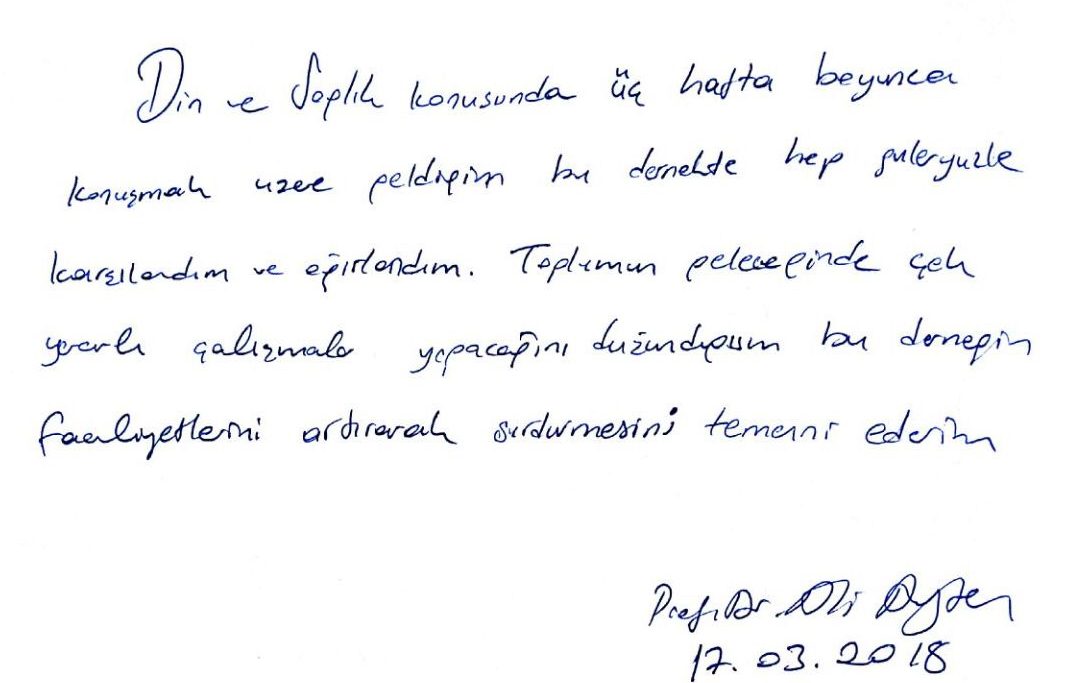 Din ve Sağlık konusunda üç hafta boyunca
konuşmak üzere geldiğim bu dernekte hep güleryüzle
karşılandım ve ağırlandım. Toplumun geleceğinde çok
yararlı çalışmalar yapacağını düşündüğüm bu derneğin
faaliyetlerini artırarak sürdürmesini temenni ederim
Prof. Dr Ali Ayten
17.03.2018